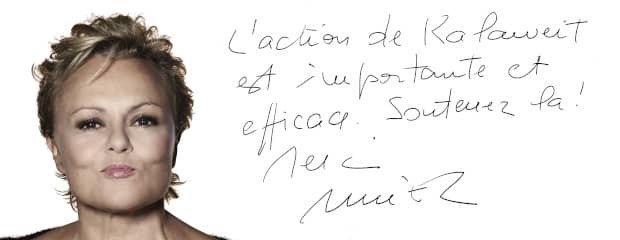 L'action de Kalaweit
est importante et
efficace. Soutenez la !
Merci